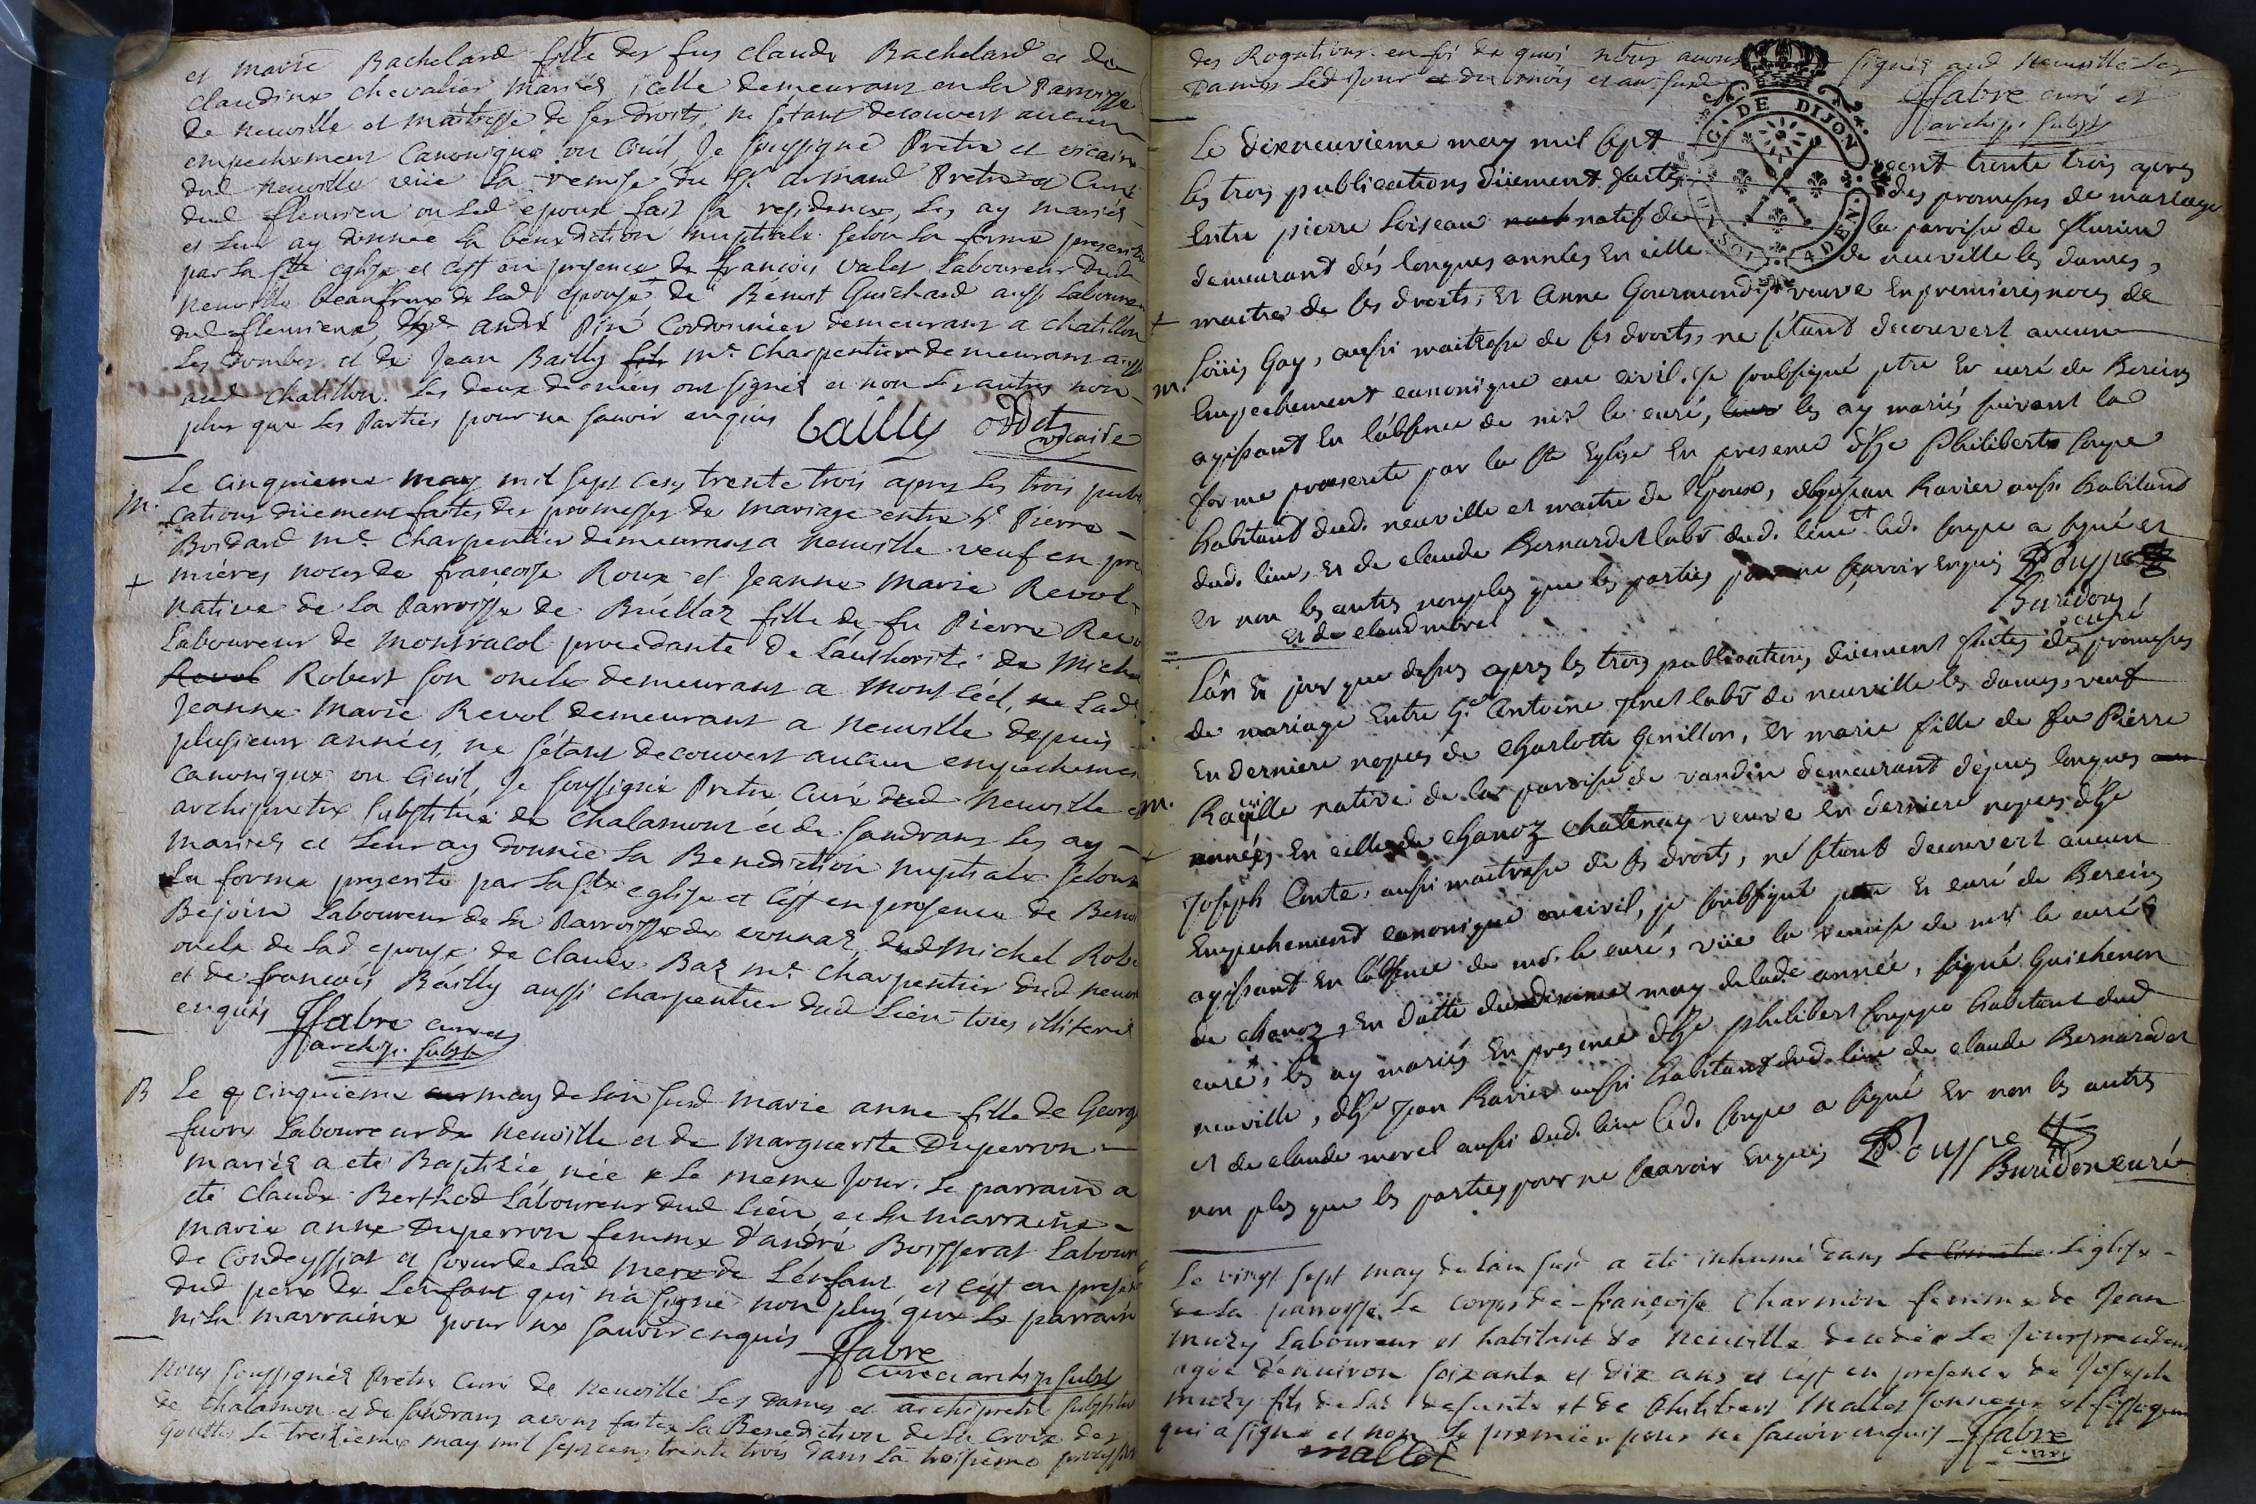 et marie Bachelard fille des fus claude Bachelard et de
claudine chevalier mariés, icelle demeurant en la Parroisse
de neuville et maitresse de ses droits, ne s'étant decouvert aucun
empechement canonique ou Civil, Je soussigné Pretre et vicaire
dud neuville vüe la remise du Sr. Pretre et Curé
dud fleurieu ou led epoux fait sa residence, les ay mariés
et leur ay donnée la bénédiction nuptiale selon la forme prescrite
par la Ste eglise et c'est en presence de françois valet Laboureur dud
neuville beaufrere de lad epouse de Benoit Guichard aussi Laboureur
dud fleurieux, andré Piné Cordonnier demeurant a chatillon
Les Dombes et de Jean Bailly fils me. charpentier demeurant aussi
aud chatillon. Les deux derniers ont signés et non les autres non
plus que les Parties pour ne savoir enquis bailly vicaire
m. Le cinquieme may mil sept cens trente trois apres les trois publi
cations düement faites des promesses de mariage entre he Pierre
Boidard me. Charpentier demeurant a neuville veuf en pre
miéres noces de françoise Roux et Jeanne Marie Revol
native de la Parroisse de Buellaz fille de fu Pierre Revo
Laboureur de montracol procedante de L'authorité de Michel
Revol Robert son oncle demeurant a Montcéel, ne Lade
Jeanne Marie Revol demeurant a neuville depuis
plusieurs années, ne s'étant decouvert aucun empechement
canonique ou Civil, Je soussigné Pretre Curé dud neuville et
archiprêtre substitué de Chalamont et de Sandrans les ay
mariés et Leur ay donnée la Benediction nuptiale selon
la forme prescrite par la Ste eglise et c'est en presence de Benoi
Bejoin Laboureur de la Parroisse de vonnaz, dud Michel Robe
oncle de lad epouse de Claude Baz me. Charpentier dud neuvi
et de françois Bailly aussi charpentier dud Lieu tous illiterés
enquis ffabre curé et
archip. subst
B Le cinquieme may de l'an susd Marie anne fille de George
favre Laboureur de neuville et de Marguerite Duperron
mariés a eté Baptisée née le meme Jour. Le parrain a
eté Claude Berthod Laboureur dud Lieu et la marraine
Marie anne Duperron femme d'andré Boisserat Labour
de Condeyssiat et soeur de lad mere de l'enfant et c'est en prese
dud pere de L'enfant qui n'a signé non plus que le parrain
ni la marraine pour ne savoir enquis ffabre
curé et archip subst
nous soussignés Pretre Curé de neuville Les Dames et archipretre substitué
de Chalamon et de Sandrans avons faites la Benediction de la Croix des
Gouttes Le treizieme may mil sept cens trente trois dans la troisieme procession
des Rogations. en foi de quoi nous avons signés aud Neuville Les
Dames Led Jour et du mois et an susd ffabre curé et
archip. subst
G. DE DIJON
Le dixneuvieme may mil sept cent trente trois apres
les trois publications düement faites des promesses de mariage
Entre pierre Loiseau natif de la paroisse de flurieu
demeurant dés longues années En celle de neuville les dames,
maitre de ses droits, Et Anne Gourmond veuve En premieres noces de
m. Loüis Gay, aussi maitresse de ses droits, ne s'étant decouvert aucun
Empechement canonique ou civil. Je soubsigné ptre Et curé de Bereins
agissant En l'absence de mr le curé, les ay mariés suivant la
forme prescrite par la Ste Eglise En presence d'hle Philibert Souppe
habitant dud. neuville et maitre de l'epoux, d'hle jean Ravier aussi habitant
dud. lieu, Et de claude Bernardet labr dud. lieu led. souppe a signé et
Et non les autres nonplus que les parties pour ne sçavoir Enquis Pouppe
Et de claud morel Buridon curé
L'an Et jour que dessus apres les trois publications düement faites des promesses
de mariage Entre he antoine labr de neuville les dames, veuf
En derniere nopces de Charlotte Genillon, Et marie fille de fu Pierre
m. native de la paroisse de vandin demeurant depuis longues
années En celle de Chanoz Chatenay veuve En derniere nopces d'he
Joseph Conte, aussi maitresse de ses droits, ne s'étant decouvert aucun
Empechement canonique ou civil, je soubsigné ptre Et curé de Bereins
agissant En l'absence de mr. le curé, vüe la remise de mr le curé
de chanoz, En datte du may de lade année, signé Guichenon
curé, les ay mariés En presence d'hle philibert Souppe habitant dud
neuville, d'hle Jean Ravier aussi habitant dud. lieu de claude Bernardet
et de claude morel aussi dud. lieu led. souppe a signé Et non les autres
non plus que les parties pour ne sçavoir Enquis Pouppe
Buridon curé
Le vingt sept may de l'an susd a été inhumé dans L'eglise
de La parroisse Le corps de françoise Charmon femme de Jean
muzy Laboureur et habitant de neuville decedée Le jour precedent
agée d'environ soixante et dix ans et c'est en presence de Joseph
muzy fils de lad defunte et de Philibert Mallet sonneur et fossoyeur
qui a signé et non Le premier pour ne savoir enquis ffabre
mallet curé